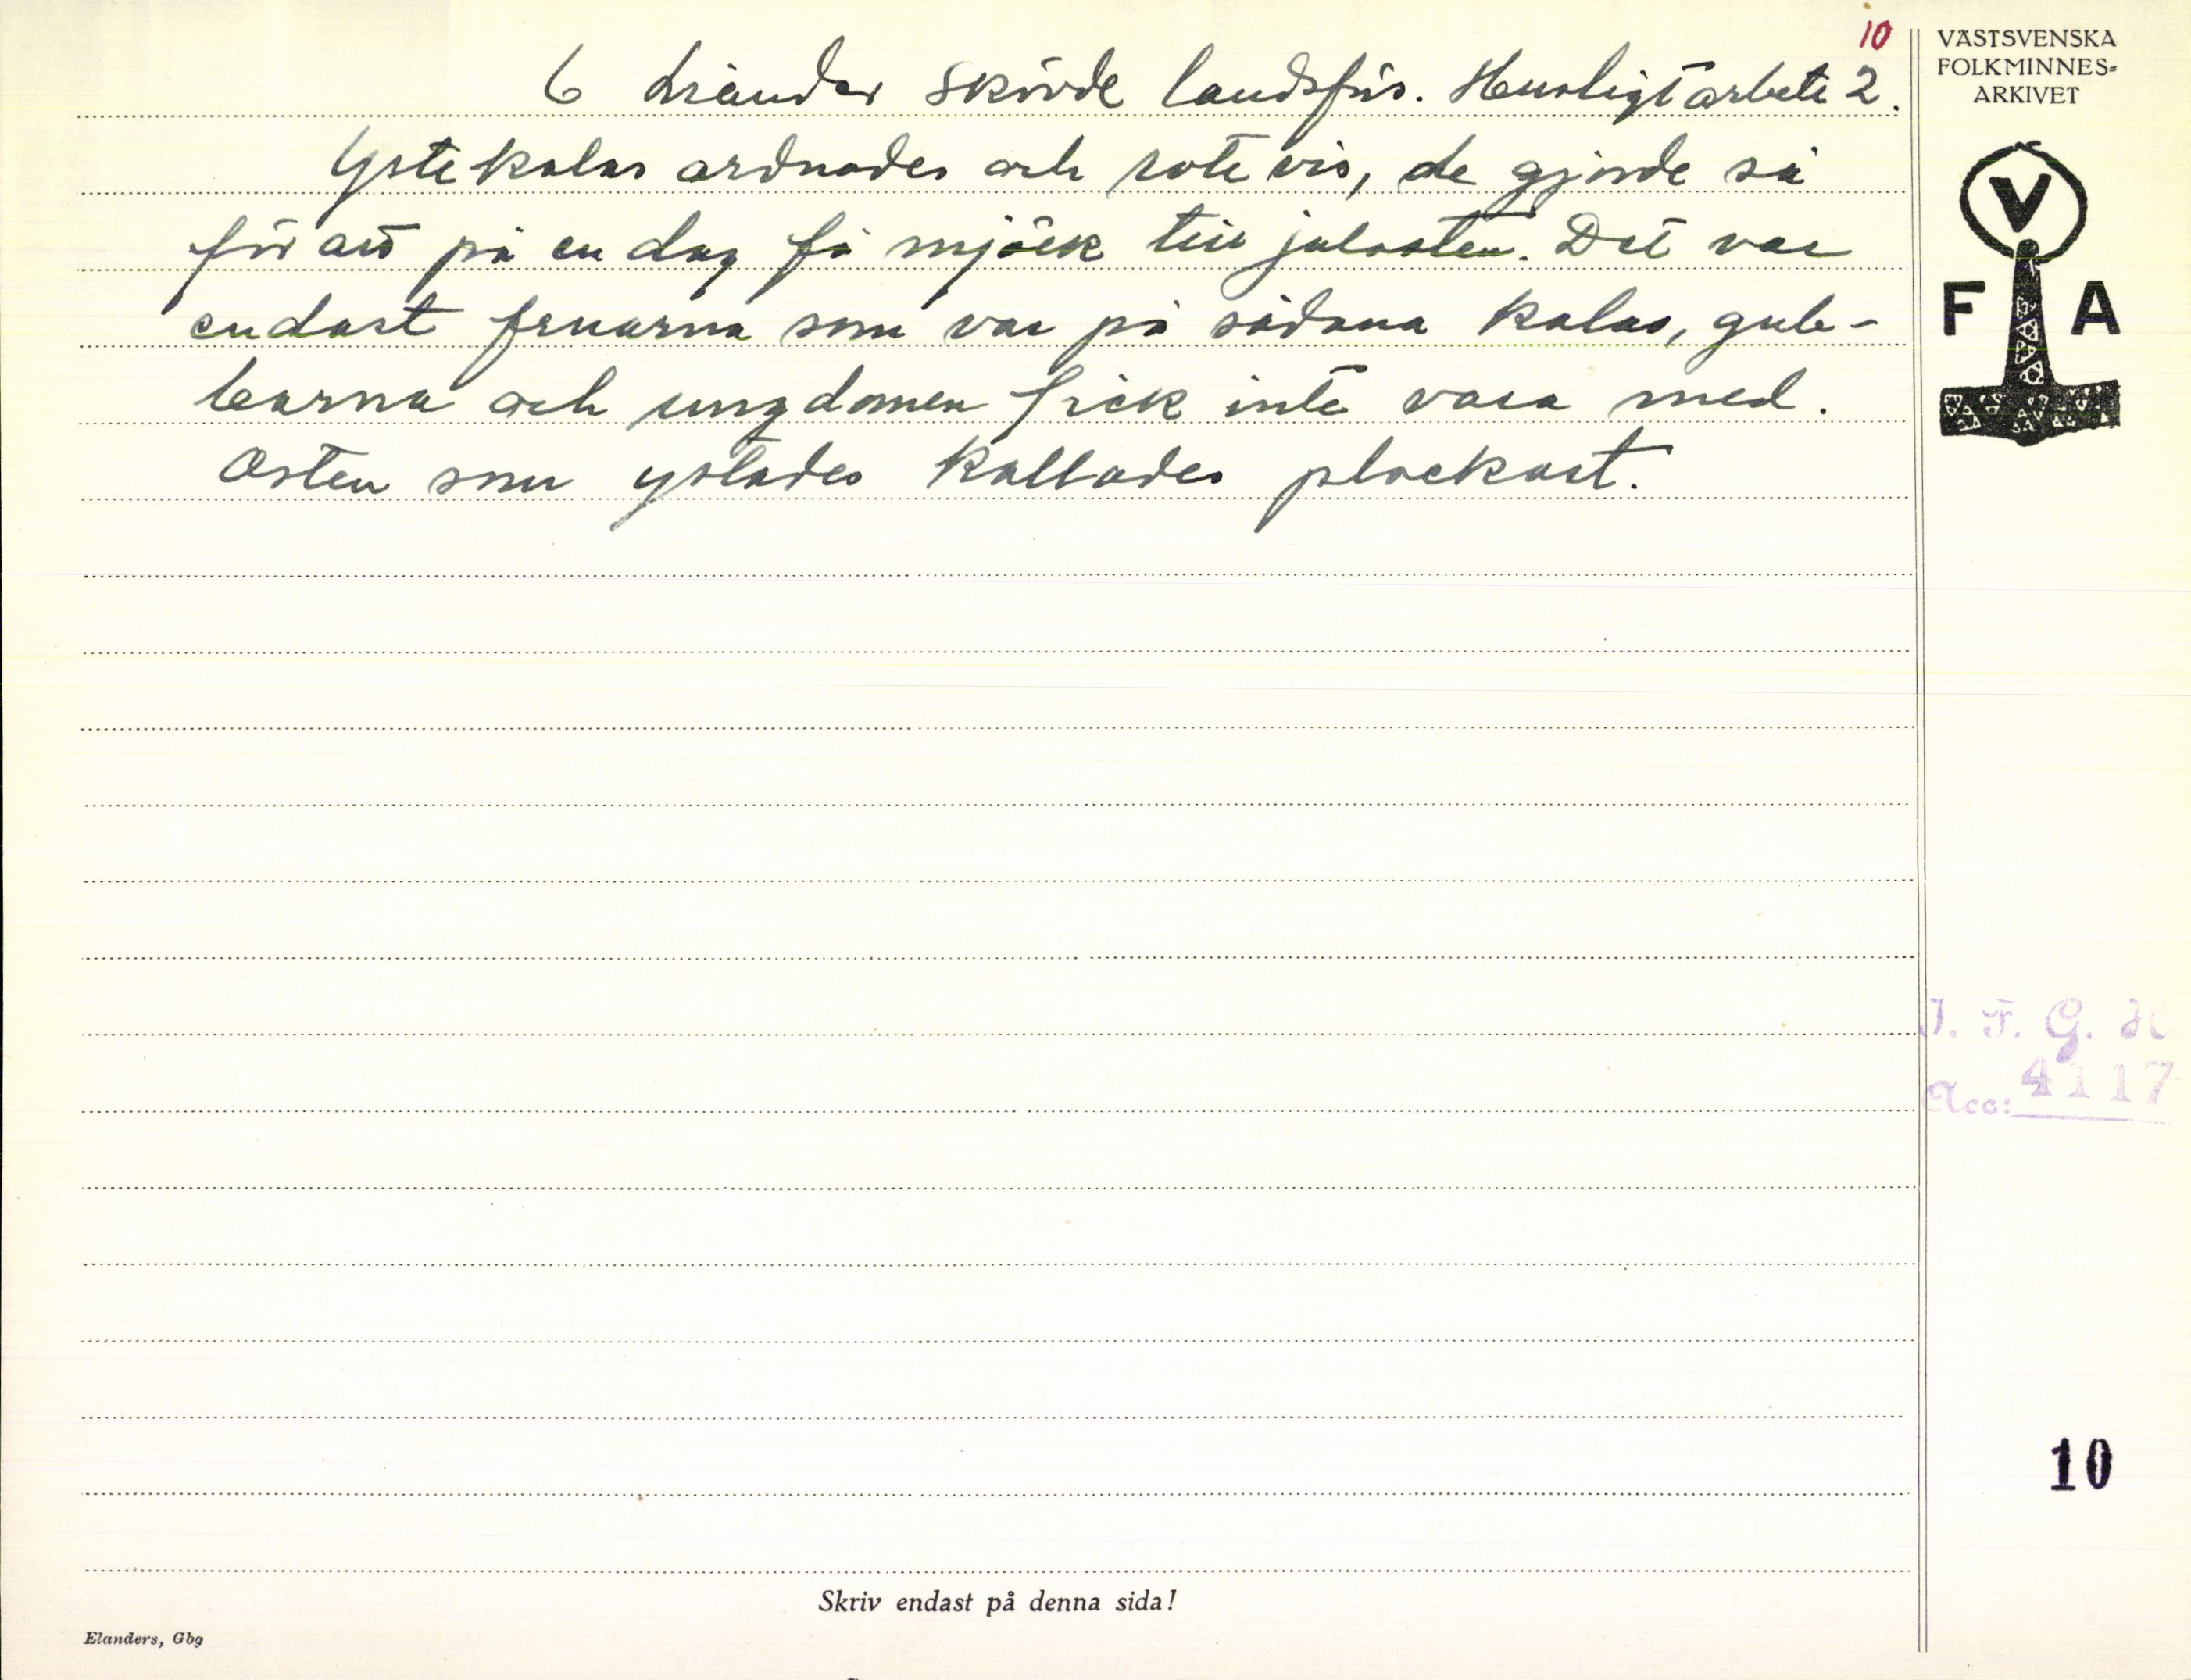 10
6 Liander Skövde landsförs. Husligt arbete 2.
Ystekalas ordnades och rotevis, de gjorde så
för att på en dag få mjölk till julosten. Det var
endast fruarna som var på sådana kalas, gub-
barna och ungdomen fick inte vara med.
Osten som ystades kallades plockost.
VÄSTSVENSKA
FOLKMINNES-
ARKIVET
V
F A
I. F. G. H
Acc: 4117
10
Skriv endast på denna sida!
Elanders, Gbg